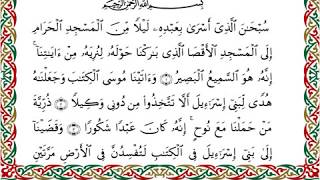 بِسْمِ ٱللَّهِ ٱلرَّحْمَٰنِ ٱلرَّحِيمِ
سُبْحَٰنَ ٱلَّذِىٓ أَسْرَىٰ بِعَبْدِهِۦ لَيْلًا مِّنَ ٱلْمَسْجِدِ ٱلْحَرَامِ
إِلَى ٱلْمَسْجِدِ ٱلْأَقْصَا ٱلَّذِى بَٰرَكْنَا حَوْلَهُۥ لِنُرِيَهُۥ مِنْ ءَايَٰتِنَآ ۚ
إِنَّهُۥ هُوَ ٱلسَّمِيعُ ٱلْبَصِيرُ ١ وَءَاتَيْنَا مُوسَى ٱلْكِتَٰبَ وَجَعَلْنَٰهُ
هُدًى لِّبَنِىٓ إِسْرَٰٓءِيلَ أَلَّا تَتَّخِذُوا۟ مِن دُونِى وَكِيلًا ٢ ذُرِّيَّةَ
مَنْ حَمَلْنَا مَعَ نُوحٍ ۚ إِنَّهُۥ كَانَ عَبْدًا شَكُورًا ٣ وَقَضَيْنَآ
إِلَىٰ بَنِىٓ إِسْرَٰٓءِيلَ فِى ٱلْكِتَٰبِ لَتُفْسِدُنَّ فِى ٱلْأَرْضِ مَرَّتَيْنِ